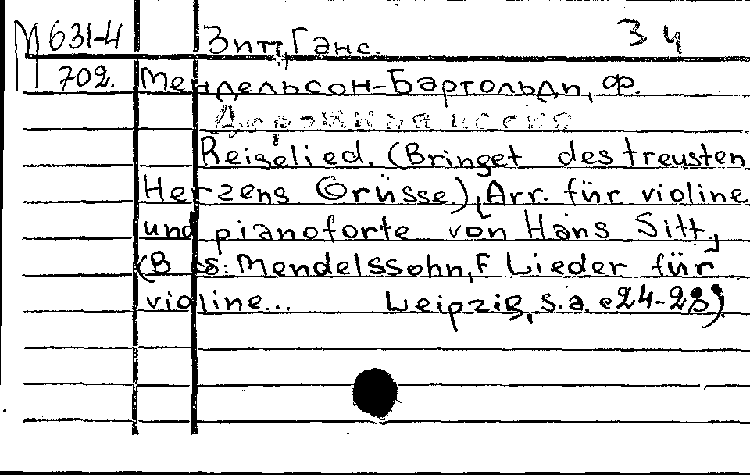 М631-4 Зитт, Ганс. 3 4
702. Мендельсон-Бартольди, Ф.
Дорожная песня
Reiselied. (Bringet des treusten
Herzens Grüsse), Arr. für violine
und pianoforte von Hans Sitt,
(В кн: Mendelssohn, F Lieder für
violine... Leipzig, s.a. c24-28)